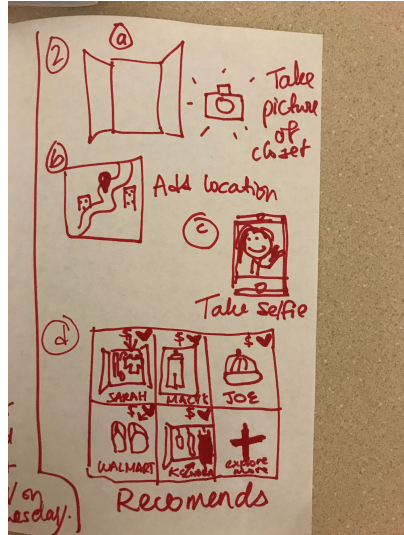 2
a
Take
picture
of
closet
b
Add location
c
Take selfie
d
$ $ $
SARAH MACY'S JOE
$ $
WALMART
explore
more
Recomends
on
esday.